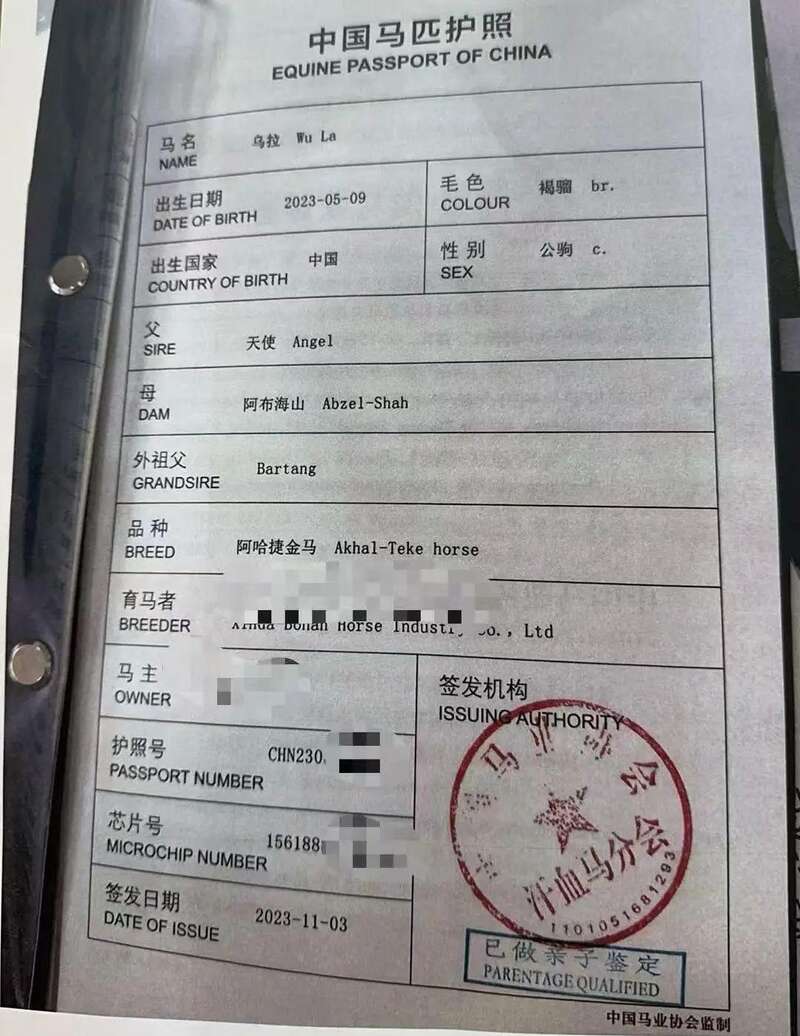 中国马匹护照
EQUINE PASSPORT OF CHINA
马名 乌拉 Wu La
NAME
出生日期 2023-05-09
DATE OF BIRTH
毛色 褐骝 br.
COLOUR
出生国家 中国
COUNTRY OF BIRTH
性别 公驹 c.
SEX
父
SIRE 天使 Angel
母
DAM 阿布海山 Abzel-Shah
外祖父
GRANDSIRE Bartang
品种
BREED 阿哈捷金马 Akhal-Teke horse
育马者
BREEDER Xinda Bohan Horse Industry Co., Ltd
马主
OWNER
签发机构
ISSUING AUTHORITY
护照号 CHN230
PASSPORT NUMBER
芯片号 156188
MICROCHIP NUMBER
签发日期 2023-11-03
DATE OF ISSUE
马业协会
汗血马分会
1101051681293
已做亲子鉴定
PARENTAGE QUALIFIED
中国马业协会监制